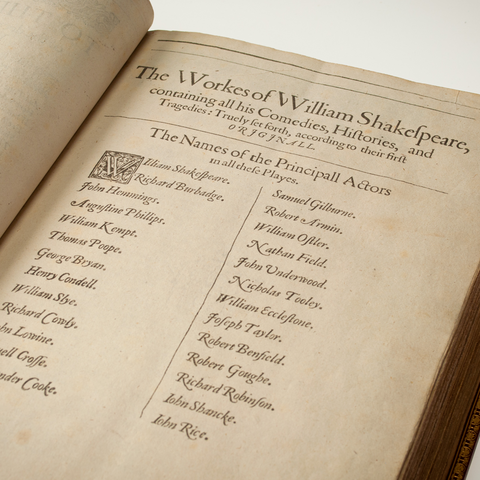 The Workes of William Shakespeare,
containing all his Comedies, Histories, and
Tragedies: Truely set forth, according to their first
ORIGINALL.
The Names of the Principall Actors
in all these Playes.
William Shakespeare.
Richard Burbadge.
John Hemmings.
Augustine Phillips.
William Kempt.
Thomas Poope.
George Bryan.
Henry Condell.
William Slye.
Richard Cowly.
hn Lowine.
ell Crosse.
nder Cooke.
Samuel Gilburne.
Robert Armin.
William Ostler.
Nathan Field.
John Underwood.
Nicholas Tooley.
William Ecclestone.
Joseph Taylor.
Robert Benfield.
Robert Goughe.
Richard Robinson.
Iohn Shancke.
Iohn Rice.